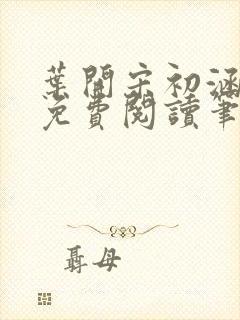 葉開宋初涵
免費閱讀筆
聶母